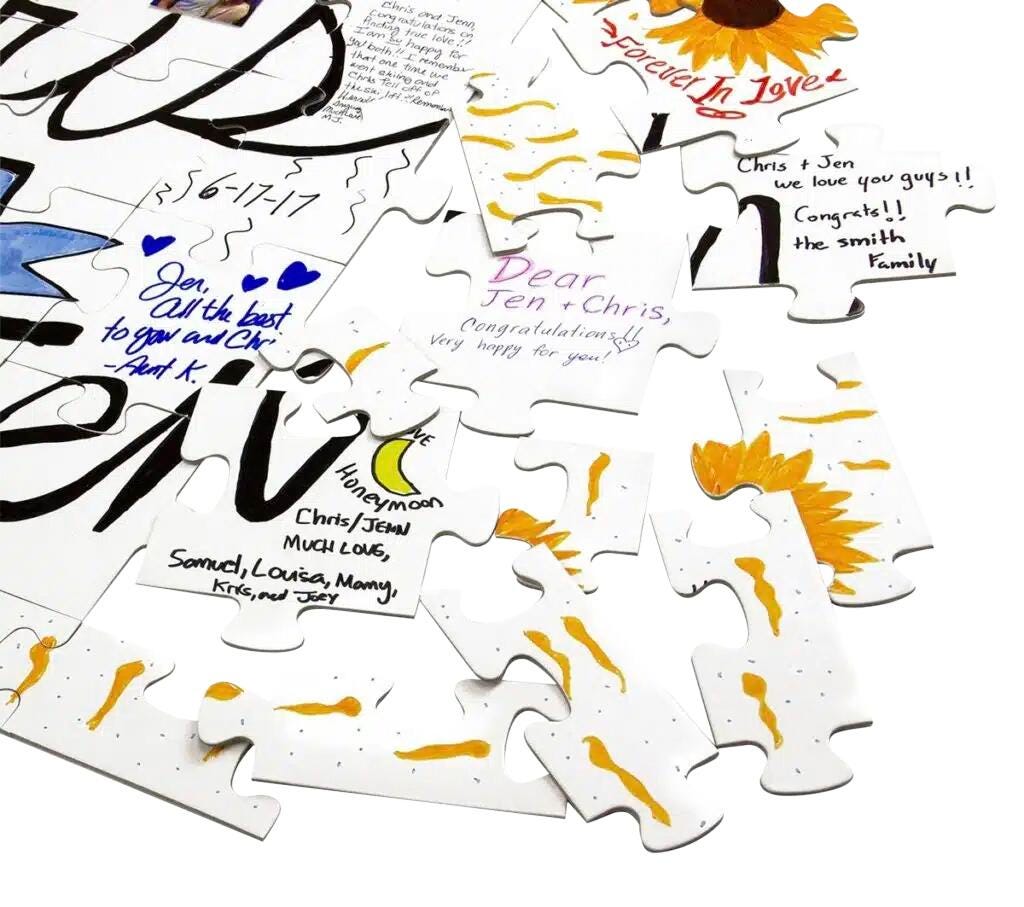 Chris and Jenn,
Congratulations on
finding true love!!
I am so happy for
you both!! I remember
that one time we
went skiing and
Chris fell off of
the ski lift
M.J.
Forever In Love
6-17-17
Chris + Jen
we love you guys!!
Congrats!!
the smith
Family
Jen,
All the best
to you and Chri
-Aunt K.
Dear
Jen + Chris,
Congratulations!!
Very happy for you!
en
VE
Honeymoon
Chris/JENN
MUCH LOVE,
Samuel, Louisa, Mamy,
Kris, and Joey